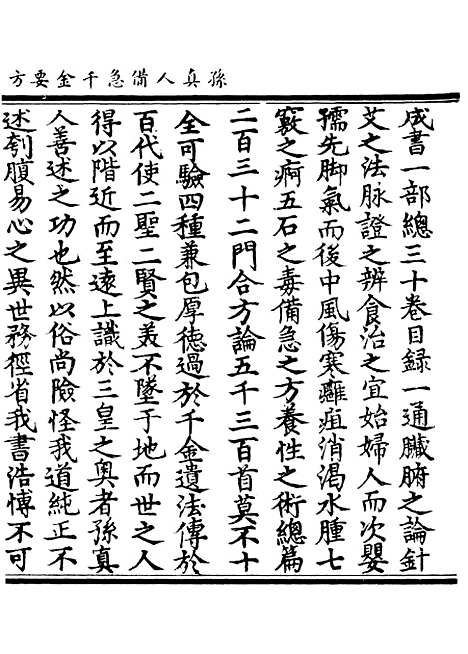 孫真人備急千金要方
成書一部總三十卷目録一通臟腑之論針
艾之法脉證之辨食治之宜始婦人而次嬰
孺先脚氣而後中風傷寒癰疽消渴水腫七
竅之痾五石之毒備急之方養性之術總篇
二百三十二門合方論五千三百首莫不十
全可驗四種兼包厚德過於千金遺法傳於
百代使二聖二賢之美不墜于地而世之人
得以階近而至遠上識於三皇之奥者孫真
人善述之功也然以俗尚險怪我道純正不
述刳腹易心之異世務徑省我書浩愽不可